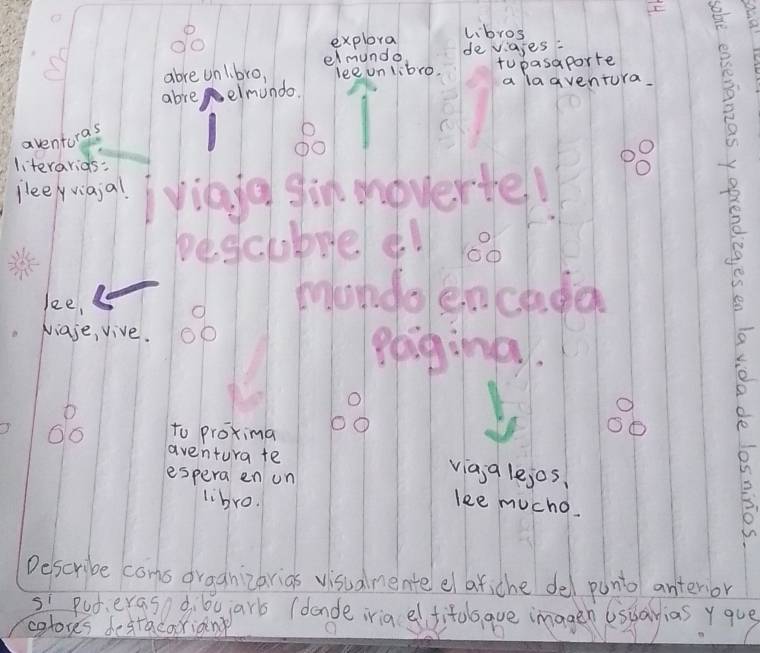 abre un libro,
abre el mundo.
explora
el mundo,
lee un libro.
Libros
de viajes:
tu pasaporte
a la aventura.
aventuras
literarias:
¡lee y viaja!
¡viaja sin moverte!
Descubre el
mundo en cada
Página.
lee,
viaje, vive.
tu próxima
aventura te
espera en un
libro.
viaja lejos,
lee mucho.
Describe como organizarias visualmente el afiche del punto anterior
si pudieras dibujarlo (donde iria el titulo, que imagen usarias y que
colores destacarian)
sobre enseñanzas y aprendizajes en la vida de los niños.